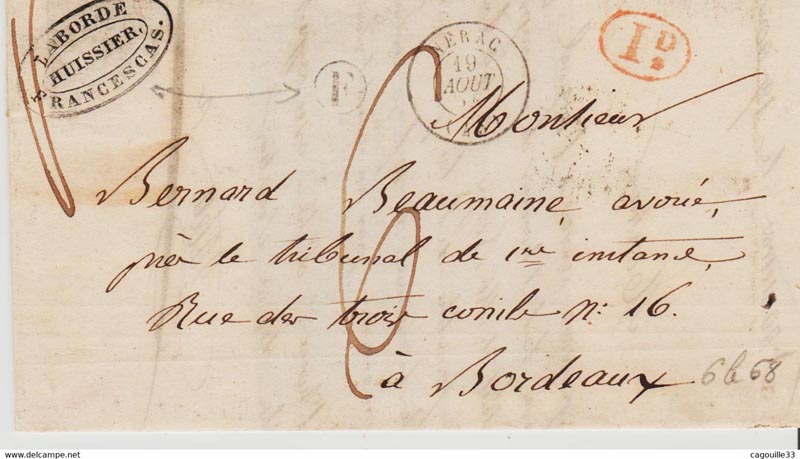 LABORDE
HUISSIER.
FRANCESCAS.
F
NÉRAC
19
AOUT
1 D.
Monsieur
Bernard Beaumaine, avoué,
près le tribunal de 1re instance,
Rue des trois conils n: 16.
à Bordeaux
6b 68
cagouille33